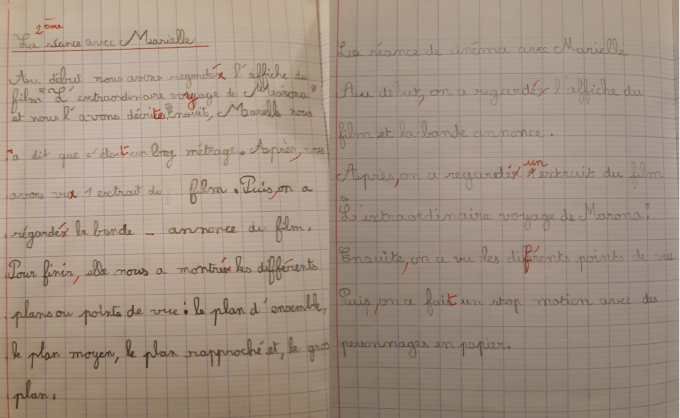 2ème
La séance avec Marielle
Au début nous avons regardéx l'affiche du
film "L'extraordinaire voyage de Marona"
et nous l'avons décrite. Ensuite, Marielle nous
a dit que c'était un long métrage. Après, nous
avons vux 1 extrait du film. Puis, on a
régardéx la bande - annonce du film.
Pour finir, elle nous a montréx les différents
plans ou points de vue : le plan d'ensemble,
le plan moyen, le plan rapproché et, le gros
plan.
La séance de cinéma avec Marielle
Au début, on a regardéx l'affiche du
film et la bande annonce.
un
Après, on a regardéx 1 extrait du film
"L'extraordinaire voyage de Marona".
Ensuite, on a vu les différents points de vue
Puis, on a fait un stop motion avec des
personnages en papier.